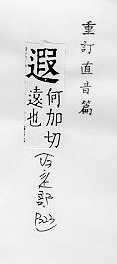 重訂直音篇
遐
何加切
遠也